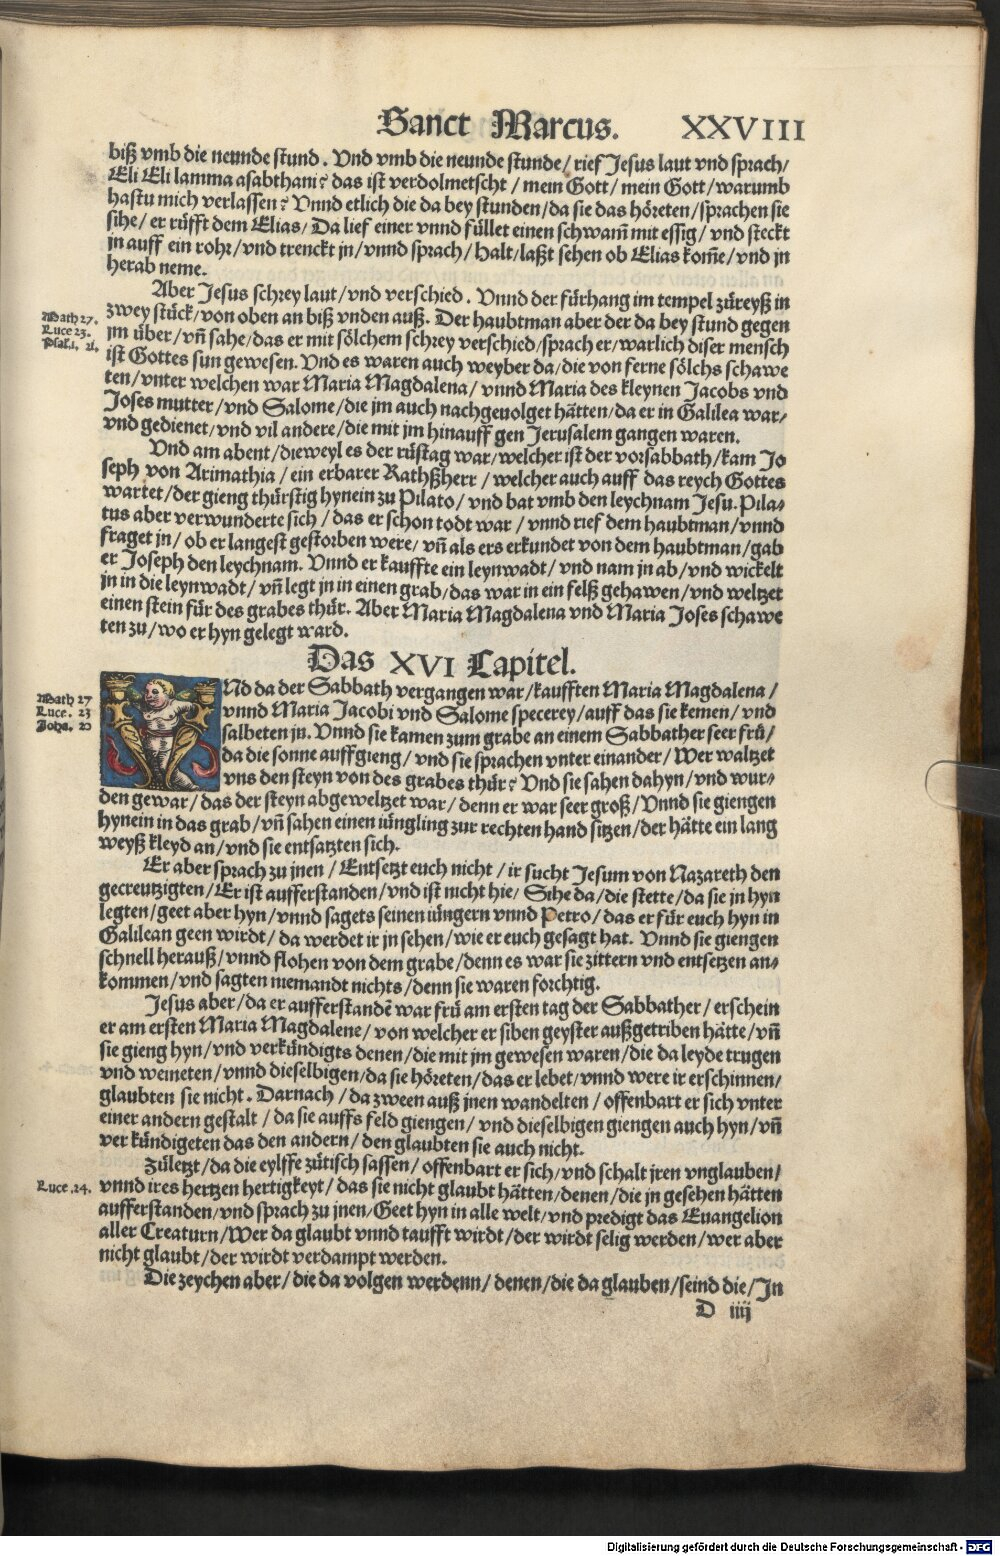 Sanct Marcus. XXVIII
biß vmb die neunde stund. Vnd vmb die neunde stunde/ rief Jesus laut vnd sprach/
Eli Eli lamma asabthani? das ist verdolmetscht / mein Gott / mein Gott / warumb
hastu mich verlassen? Vnnd etlich die da bey stunden/da sie das höreten/sprachen sie
sihe/ er rüfft dem Elias/ Da lief einer vnnd füllet einen schwam̃ mit essig/ vnd steckt
jn auff ein rohr/vnd trenckt jn/vnnd sprach/ Halt/laßt sehen ob Elias kom̃e/vnd jn
herab neme.
Aber Jesus schrey laut/vnd verschied. Vnnd der fürhang im tempel züreyß in
Math 27.
Luce 23.
Psal. 21.
zwey stück/von oben an biß vnden auß. Der haubtman aber der da bey stund gegen
jm über/vñ sahe/das er mit sölchem schrey verschied/sprach er/warlich diser mensch
ist Gottes sun gewesen. Vnd es waren auch weyber da/die von ferne sölchs schawe
ten/vnter welchen war Maria Magdalena/ vnnd Maria des kleynen Jacobs vnd
Joses mutter/vnd Salome/die jm auch nachgeuolget hätten/da er in Galilea war/
vnd gedienet/vnd vil andere/die mit jm hinauff gen Jerusalem gangen waren.
Vnd am abent/dieweyl es der rüstag war/welcher ist der vorsabbath/kam Jo
seph von Arimathia / ein erbarer Rathßherr / welcher auch auff das reych Gottes
wartet/der gieng thürstig hynein zu Pilato/ vnd bat vmb den leychnam Jesu. Pila-
tus aber verwunderte sich / das er schon todt war / vnnd rief dem haubtman/vnnd
fraget jn/ ob er langest gestorben were/ vñ als ers erkundet von dem haubtman/gab
er Joseph den leychnam. Vnnd er kauffte ein leynwadt/ vnd nam jn ab/vnd wickelt
jn in die leynwadt/ vñ legt jn in einen grab/das war in ein felß gehawen/vnd weltzet
einen stein für des grabes thür. Aber Maria Magdalena vnd Maria Joses schawe
ten zu/wo er hyn gelegt ward.
Das XVI Capitel.
Math 27
Luce. 23
Joha. 20
Nd da der Sabbath vergangen war/kaufften Maria Magdalena/
vnnd Maria Jacobi vnd Salome specerey/auff das sie kemen/ vnd
salbeten jn. Vnnd sie kamen zum grabe an einem Sabbather seer frü/
da die sonne auffgieng/vnd sie sprachen vnter einander/ Wer waltzet
vns den steyn von des grabes thür? Vnd sie sahen dahyn/vnd wur-
den gewar/das der steyn abgeweltzet war/ denn er war seer groß/ Vnnd sie giengen
hynein in das grab/vñ sahen einen iüngling zur rechten hand sitzen/der hätte ein lang
weyß kleyd an/vnd sie entsatzten sich.
Er aber sprach zu jnen / Entsetzt euch nicht / ir sucht Jesum von Nazareth den
gecreutzigten/Er ist aufferstanden/vnd ist nicht hie/ Sihe da/die stette/da sie jn hyn
legten/geet aber hyn/vnnd sagets seinen iüngern vnnd Petro/das er für euch hyn in
Galilean geen wirdt/da werdet ir jn sehen/wie er euch gesagt hat. Vnnd sie giengen
schnell herauß/vnnd flohen von dem grabe/denn es war sie zittern vnd entsetzen an-
kommen/vnd sagten niemandt nichts/denn sie waren forchtig.
Jesus aber/da er aufferstandē war frü am ersten tag der Sabbather/ erschein
er am ersten Maria Magdalene/von welcher er siben geyster außgetriben hätte/vñ
sie gieng hyn/vnd verkündigts denen/die mit jm gewesen waren/die da leyde trugen
vnd weineten/vnnd dieselbigen/da sie höreten/das er lebet/vnnd were ir erschinnen/
glaubten sie nicht. Darnach/da zween auß jnen wandelten/ offenbart er sich vnter
einer andern gestalt / da sie auffs feld giengen/ vnd dieselbigen giengen auch hyn/vñ
ver kündigeten das den andern/den glaubten sie auch nicht.
Zületzt/da die eylffe zütisch sassen/ offenbart er sich/vnd schalt jren vnglauben/
Luce.24.
vnnd ires hertzen hertigkeyt/das sie nicht glaubt hätten/denen/die jn gesehen hätten
aufferstanden/vnd sprach zu jnen/Geet hyn in alle welt/vnd predigt das Euangelion
aller Creaturn/Wer da glaubt vnnd taufft wirdt/der wirdt selig werden/wer aber
nicht glaubt/der wirdt verdampt werden.
Die zeychen aber/die da volgen werdenn/denen/die da glauben/seind die/In
D iiij
Digitalisierung gefördert durch die Deutsche Forschungsgemeinschaft - DFG